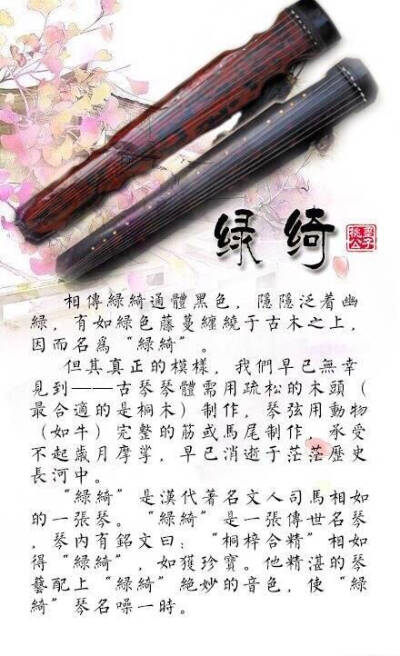 绿绮
桃墨
公子
相傳綠綺通體黑色，隱隱泛着幽
綠，有如綠色藤蔓纏繞于古木之上，
因而名爲“綠綺”。
但其真正的模樣，我們早已無幸
見到——古琴琴體需用疏松的木頭（
最合適的是桐木）制作，琴弦用動物
（如牛）完整的筋或馬尾制作，承受
不起歲月摩挲，早已消逝于茫茫歷史
長河中。
“綠綺”是漢代著名文人司馬相如
的一張琴。“綠綺”是一張傳世名琴
，琴内有銘文曰：“桐梓合精”相如
得“綠綺”，如獲珍寶。他精湛的琴
藝配上“綠綺”絶妙的音色，使“綠
綺”琴名噪一時。